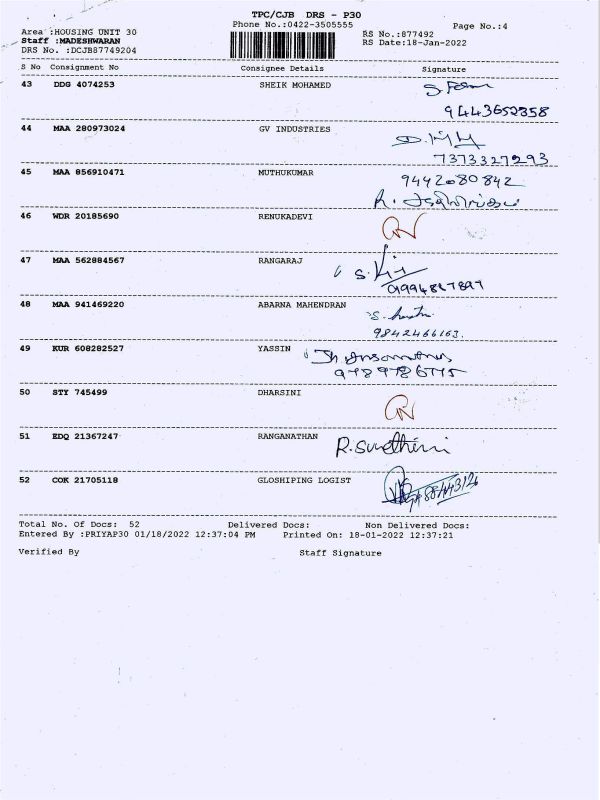 TPC/CJB DRS - P30
Phone No.:0422-3505555
Page No.:4
Area :HOUSING UNIT 30
RS No.:877492
Staff :MADESHWARAN
RS Date:18-Jan-2022
DRS No. :DCJB87749204
S No Consignment No Consignee Details Signature
43 DDG 4074253 SHEIK MOHAMED
9443652358
44 MAA 280973024 GV INDUSTRIES
7373327293
45 MAA 856910471 MUTHUKUMAR 9442080842
46 WDR 20185690 RENUKADEVI
47 MAA 562884567 RANGARAJ
48 MAA 941469220 ABARNA MAHENDRAN
9842466163.
49 KUR 608282527 YASSIN
50 STY 745499 DHARSINI
51 EDQ 21367247 RANGANATHAN
52 COK 21705118 GLOSHIPING LOGIST
Total No. Of Docs: 52 Delivered Docs: Non Delivered Docs:
Entered By :PRIYAP30 01/18/2022 12:37:04 PM Printed On: 18-01-2022 12:37:21
Verified By Staff Signature